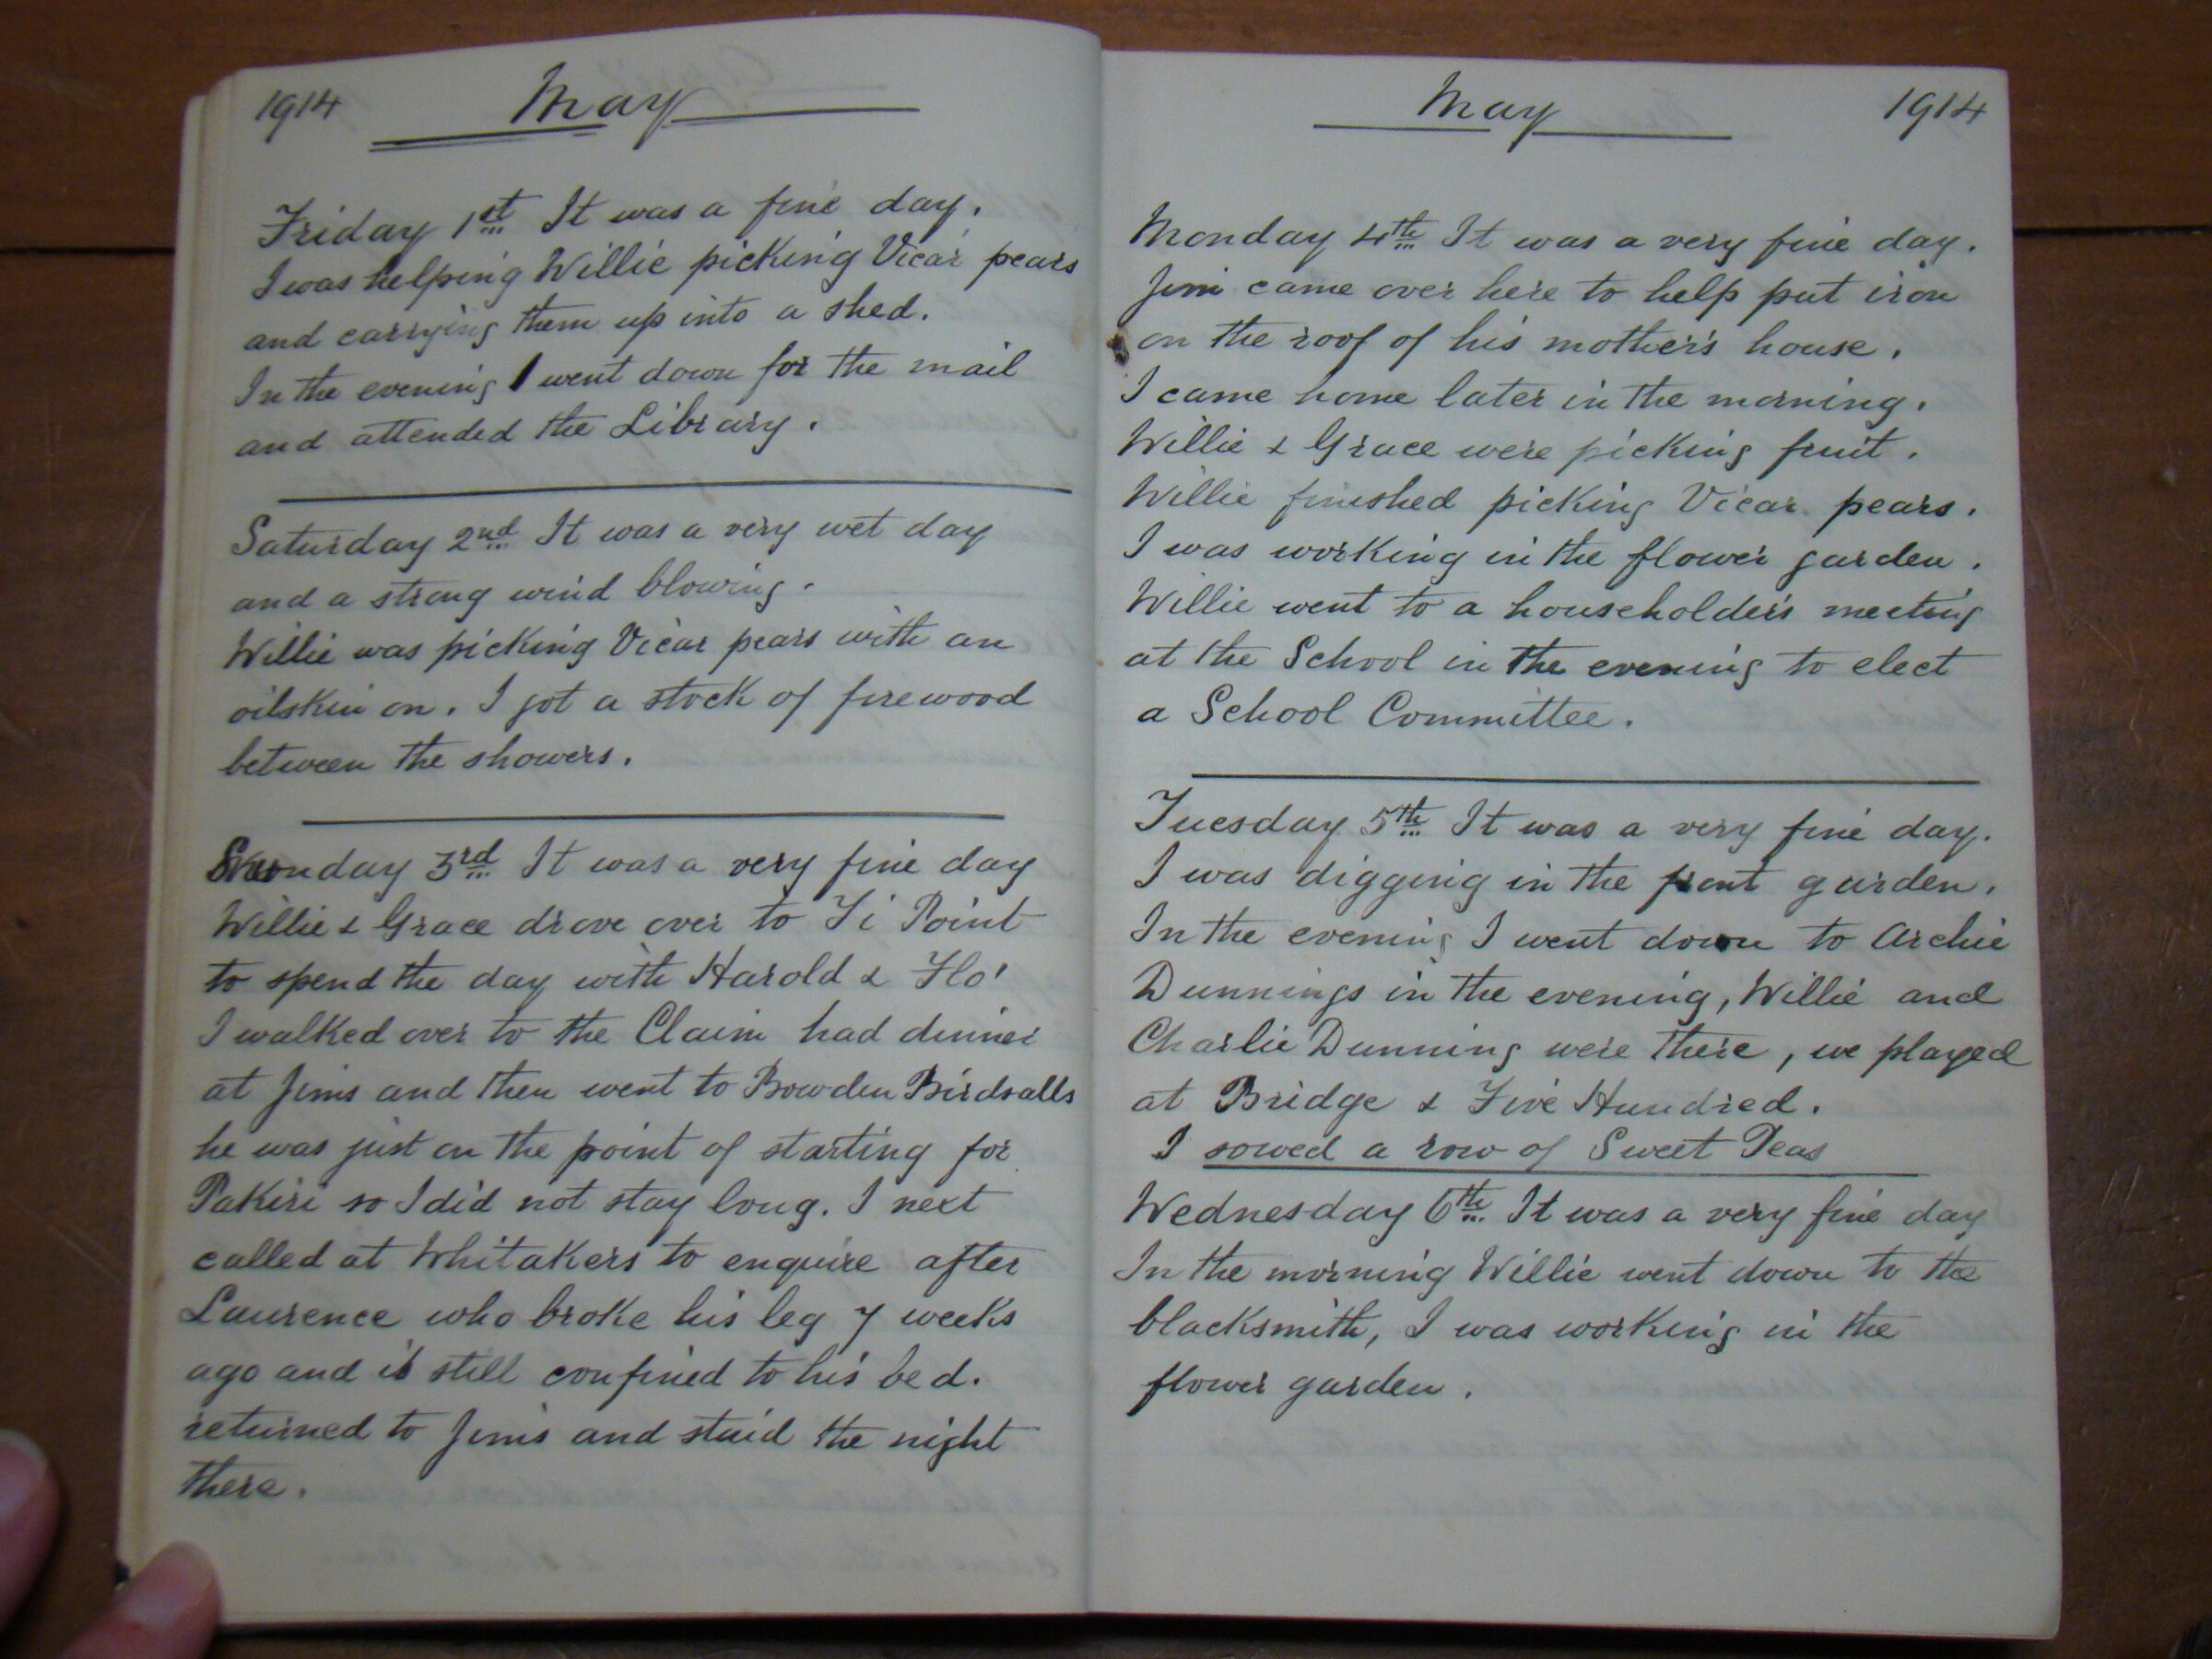 1914 May
Friday 1st It was a fine day.
I was helping Willie picking Vicar pears
and carrying them up into a shed.
In the evening I went down for the mail
and attended the Library.
Saturday 2nd It was a very wet day
and a strong wind blowing.
Willie was picking Vicar pears with an
oilskin on. I got a stock of firewood
between the showers.
Sunday 3rd It was a very fine day
Willie & Grace drove over to Ti Point
to spend the day with Harold & Flo'
I walked over to the Claim had dinner
at Jims and then went to Bowden Birdsalls
he was just on the point of starting for
Pakiri so I did not stay long. I next
called at Whitakers to enquire after
Laurence who broke his leg 7 weeks
ago and is still confined to his bed.
returned to Jims and staid the night
there.
May 1914
Monday 4th It was a very fine day.
Jim came over here to help put iron
on the roof of his mother's house.
I came home later in the morning.
Willie & Grace were picking fruit.
Willie finished picking Vicar pears.
I was working in the flower garden.
Willie went to a householder's meeting
at the School in the evening to elect
a School Committee.
Tuesday 5th It was a very fine day.
I was digging in the front garden.
In the evening I went down to Archie
Dunnings in the evening, Willie and
Charlie Dunning were there, we played
at Bridge & Five Hundred.
I sowed a row of Sweet Peas
Wednesday 6th It was a very fine day
In the morning Willie went down to the
blacksmith, I was working in the
flower garden.